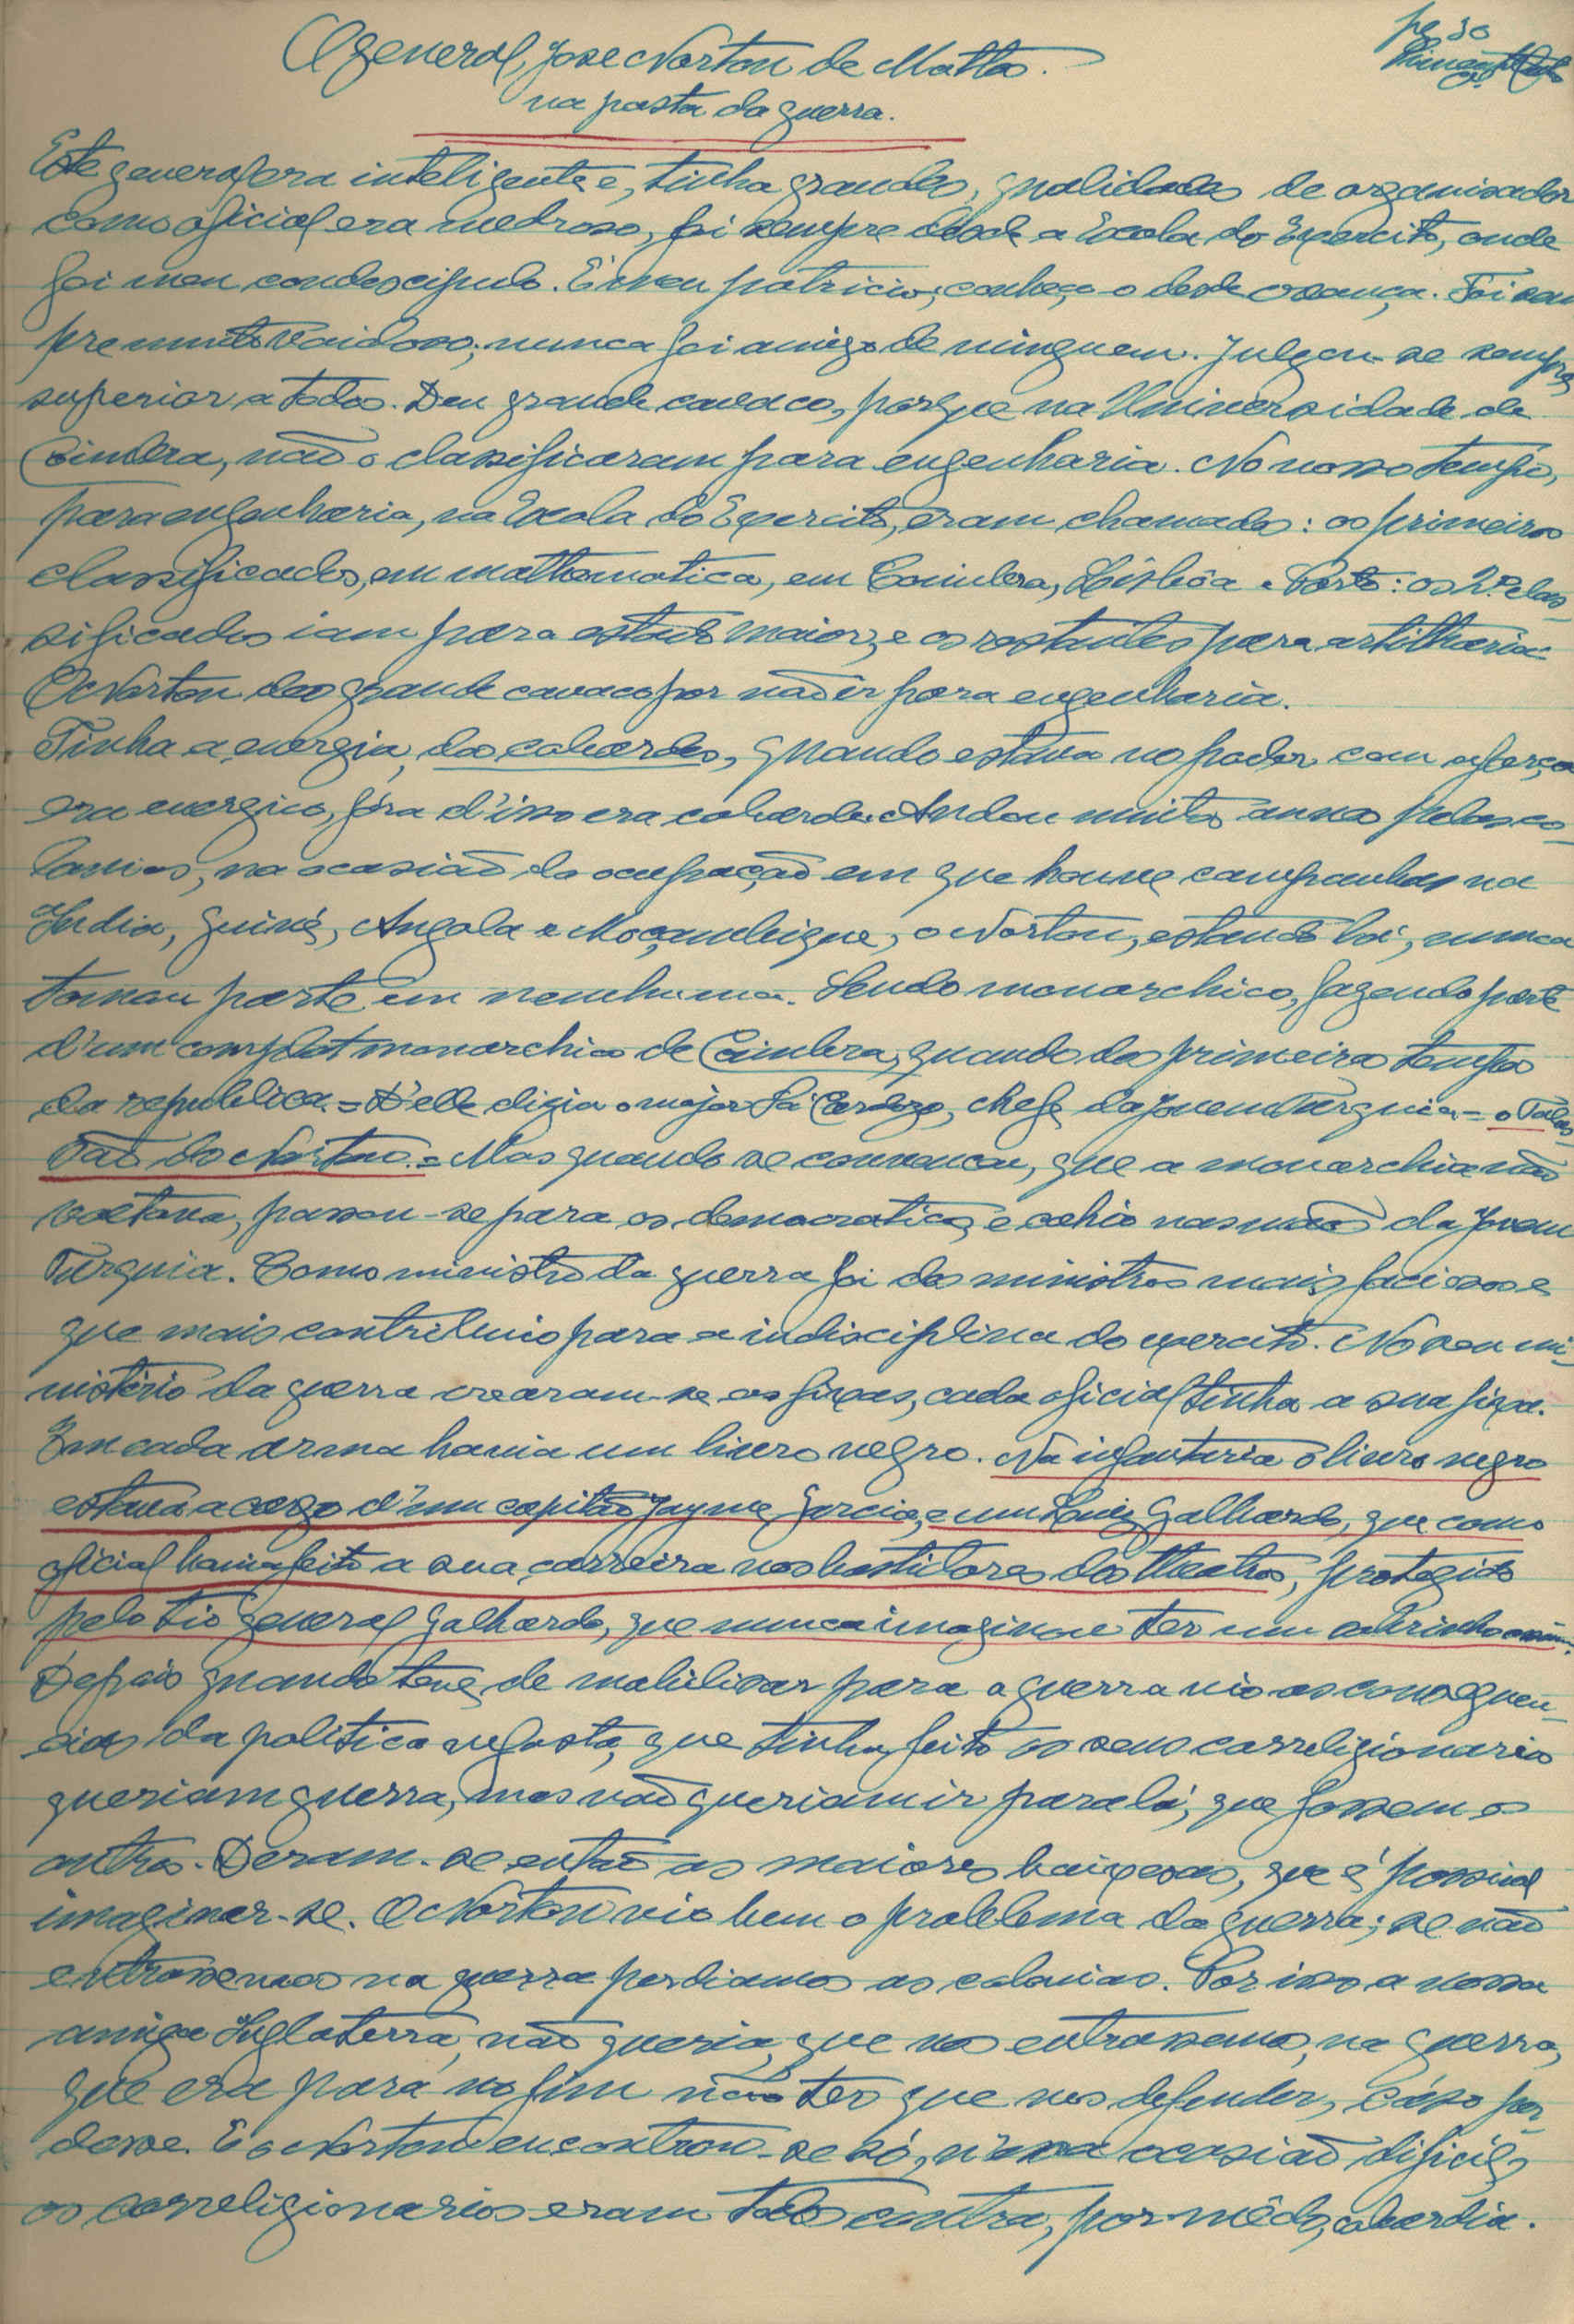 O general, Jose Norton de Mattos.
na pasta da guerra.
Este general era inteligente e, tinha grandes, qualidades de organisador
como oficial era medroso, foi sempre desde a Escola do Exercito, onde
foi meu condescipulo. É meu patricio, conheço-o desde creança. Foi sem
pre muito vaidoso; nunca foi amigo de ninguem. Julgou-se sempre
superior a todos. Deu grande cavaco, porque na Universidade de
Coimbra, não o classificaram para engenharia. No nosso tempo,
para engenharia, na Escola do Exercito, eram chamados: os primeiros
classificados, em mathematica, em Coimbra, Lisbôa e Porto: os 2.os clas-
sificados iam para estado maior, e os restantes para artilharia.
O Norton deo grande cavaco por não ir para engenharia.
Tinha a energia, dos cobardes, quando estava no poder com a força
era energico, fóra d'isso era cobarde. Andou muitos annos pelas co-
lonias, na ocasião da ocupação em que houve campanhas na
India, Guiné, Angola e Moçambique, o Norton, estando lá, nunca
tomou parte em nenhuma. Sendo monarchico, fazendo parte
d'um complot monarchico de Coimbra, quando dos primeiros tempos
da republica. = D'elle dizia o major Sá Cardozo, chefe da Jovem Turquia = o Talas-
são do Norton. = Mas quando se convenceu, que a monarchia não
voltava, passou-se para os democraticos, e cahio nas mãos da Jovem
Turquia. Como ministro da guerra foi dos ministros mais facioso e
que mais contribuio para a indisciplina do exercito. No seu mi-
nistério da guerra crearam-se as fixas, cada oficial tinha a sua fixa.
Em cada arma havia um livro negro. Na infantaria o livro negro
estava a cargo d'um capitão Jayme Garcia, e um Luiz Galhardo, que como
oficial havia feito a sua carreira nos bastidores dos theatros, protegido
pelo tio general Galhardo, que nunca imaginou ter um sobrinho assim.
Depois quando teve, de mobilisar para a guerra vio as consequen-
cias da politica nefasta, que tinha feito os seus correligionarios
queriam guerra, mas não queriam ir para lá, que fossem os
outros. Deram-se então as maiores baixesas, que é possivel
imaginar-se. O Norton vio bem o problema da guerra; se não
entrassemos na guerra perdiamos as colonias. Por isso a nossa
amiga Inglaterra, não queria, que nos entrassemos, na guerra,
que era para no fim não ter que nos defender, cáso per-
desse. E o Norton encontrou-se só, n'essa ocasião dificil,
os correligionarios eram todos contra, por mêdo, cobardia.